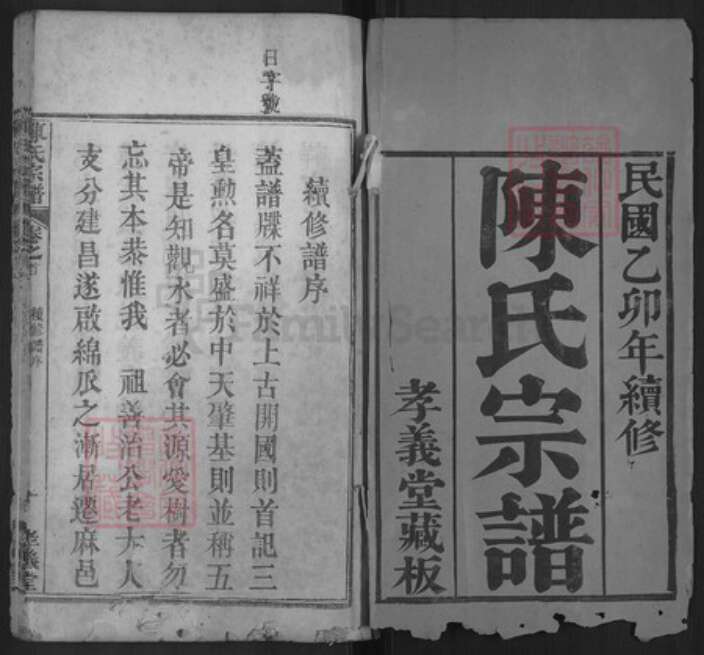 民國乙卯年續修
陳氏宗譜
孝義堂藏板
日字號
續修譜序
蓋譜牒不祥於上古開國則首記三
皇勲名莫盛於中天肇基則並稱五
帝是知觀水者必會其源愛樹者勿
忘其本恭惟我 祖善治公老大人
支分建昌遂啟綿瓜之漸居遷麻邑
陳氏宗譜
卷之首
孝義堂
FamilySearch